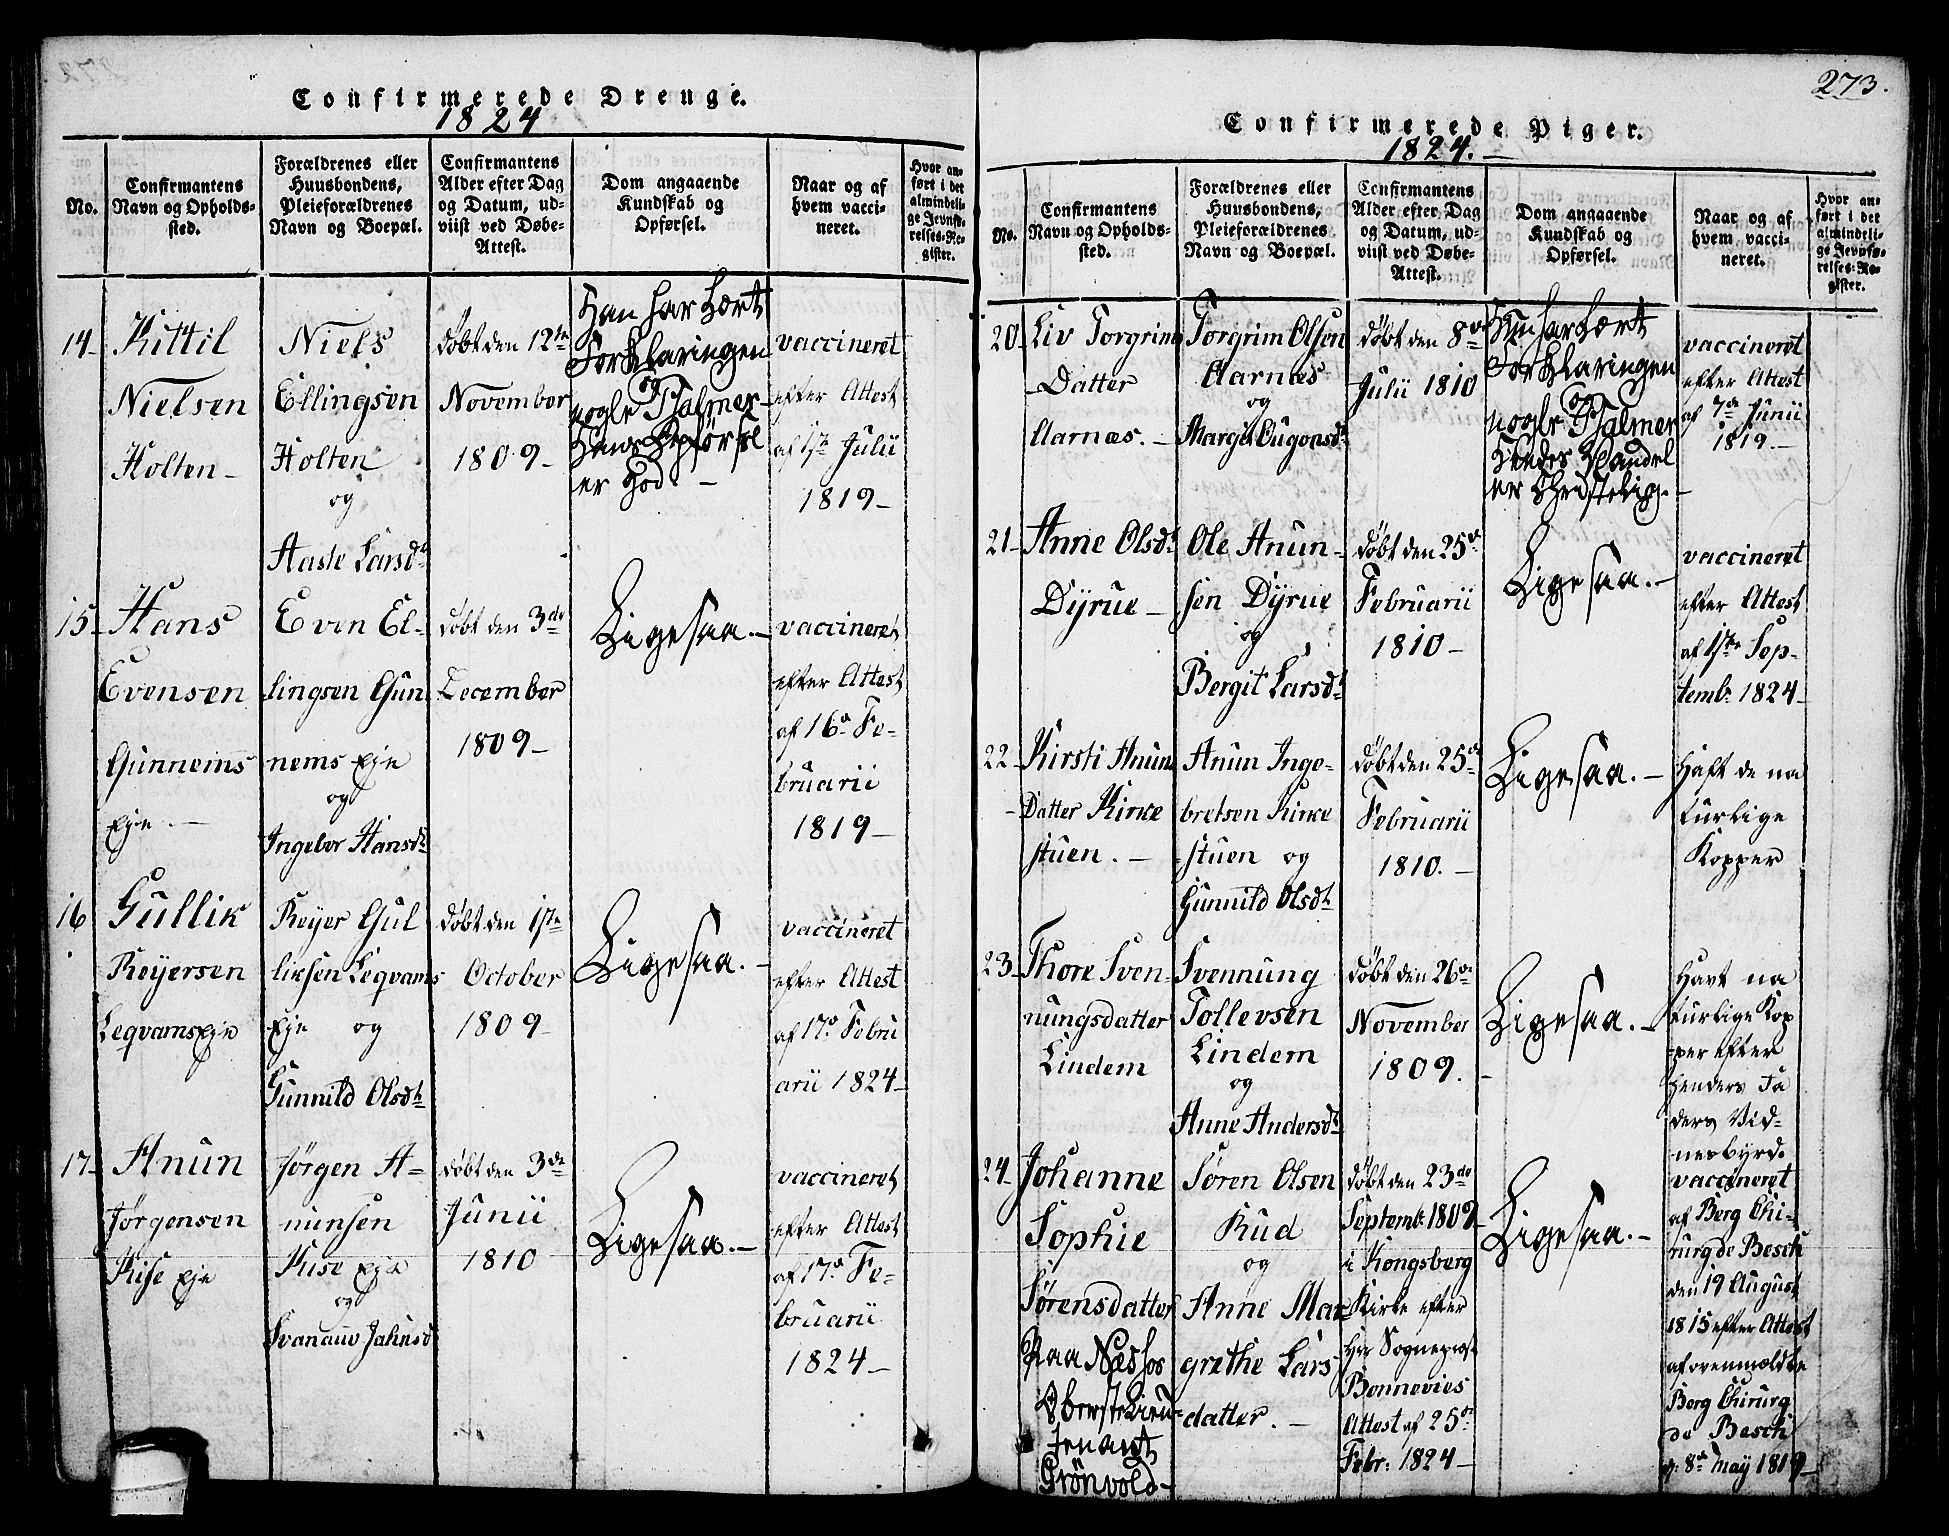 Confirmerede Drenge.
1824
No.
Confirmantens
Navn og Opholds-
sted.
Forældrenes eller
Huusbondens,
Pleieforældrenes
Navn og Boepæl.
Confirmantens
Alder efter Dag
og Datum, ud-
viist ved Døbe-
Attest.
Dom angaaende
Kundskab og
Opførsel.
Naar og af
hvem vacci-
neret.
Hvor an-
ført i det
almindeli-
ge Jevnfø-
relses-Re-
gister.
14-
Kittil
Nielsen
Holten-
Niels
Ellingsen
Holten
og
Aaste Larsdr
døbt den 12te
November
1809-
Han har Lært
Forklaringen
og
nogle Psalmer
Hans Opførsel
er God.-
vaccineret
efter Attest
af 1ste Julii
1819-
15-
Hans
Evensen
Gunneims
Eje.-
Even El-
lingsen Gun
nems Eje
og
Ingebor Hansdr
døbt den 3de
December
1809-
Ligesaa.-
vaccineret
efter Attest
af 16de Fe-
bruarii
1819-
16
Gullik
Reyersen
Leqvams Eje
Reyer Gul
liksen Leqvams
Eje og
Gunnild Olsdr
døbt den 1ste
October
1809-
Ligesaa.-
vaccineret
efter Attest
af 17de Febru
arii 1824-
17-
Anun
Jørgensen
Ruse Eje
Jørgen A-
nunsen
Ruse Eje
og
døbt den 3de
Junii
1810
Ligesaa.-
vaccineret
efter Attest
af 17de Fe-
bruarii
1824-
273.
Confirmerede Piger.
1824.-
No.
Confirmantens
Navn og Opholds-
sted.
Forældrenes eller
Huusbondens,
Pleieforældrenes
Navn og Boepæl.
Confirmantens
Alder efter Dag
og Datum, ud-
viist ved Døbe-
Attest.
Dom angaaende
Kundskab og
Opførsel.
Naar og af
hvem vacci-
neret.
Hvor an-
ført i det
almindeli-
ge Jevnfø-
relses-Re-
gister.
20-
Liv Torgrims
Datter
Aarnæs.-
Torgrim Olsen
Aarnæs
og
Margit
døbt den 8de
Julii 1810
Hun har Lært
Forklaringen
og
nogle Psalmer
Hendes Vandel
er Christelig.-
vaccineret
efter Attest
af 7de Junii
1819.-
21-
Anne Olsdr
Dyrue-
Ole Anun-
sen Dyrue
og
Bergit Larsdr
døbt den 25de
Februarii
1810-
Ligesaa.-
vaccineret
efter Attest
af 1ste Sep-
tembr 1824-
22-
Kirsti Anuns
Datter Kirke
stuen.-
Anun Inge-
bretsen Kirke
stuen og
Gunnild Olsdr
døbt den 25de
Februarii
1810.-
Ligesaa.-
Haft de na
turlige
Kopper
23-
Thore Sven-
nungsdatter
Lindem
Svennung
Tollevsen
Lindem
og
Anne Andersdr
døbt den 26de
November
1809.-
Ligesaa.-
Havt na
turlige Kop
per efter
Hendes Fa
ders Vid-
nesbyrd.
24-
Johanne
Sophie
Sørensdatter
Paa Næs hos
Oberstelieu-
tenant
Grønvold-
Søren Olsen
Rud
og
Anne Mar
grethe Lars
datter.-
døbt den 23de
Septembr 1809
i Kongsberg
Kirke efter
Hr Sogneprest
Bonnevies
Attest af 25de
Febr: 1824-
Ligesaa.-
vaccineret
af Berg Chi-
rurg de Besch
den 19 August
1815 efter Attest
af ovenmældte
Berg Chirurg
de Besch
d: 8de May 1819-